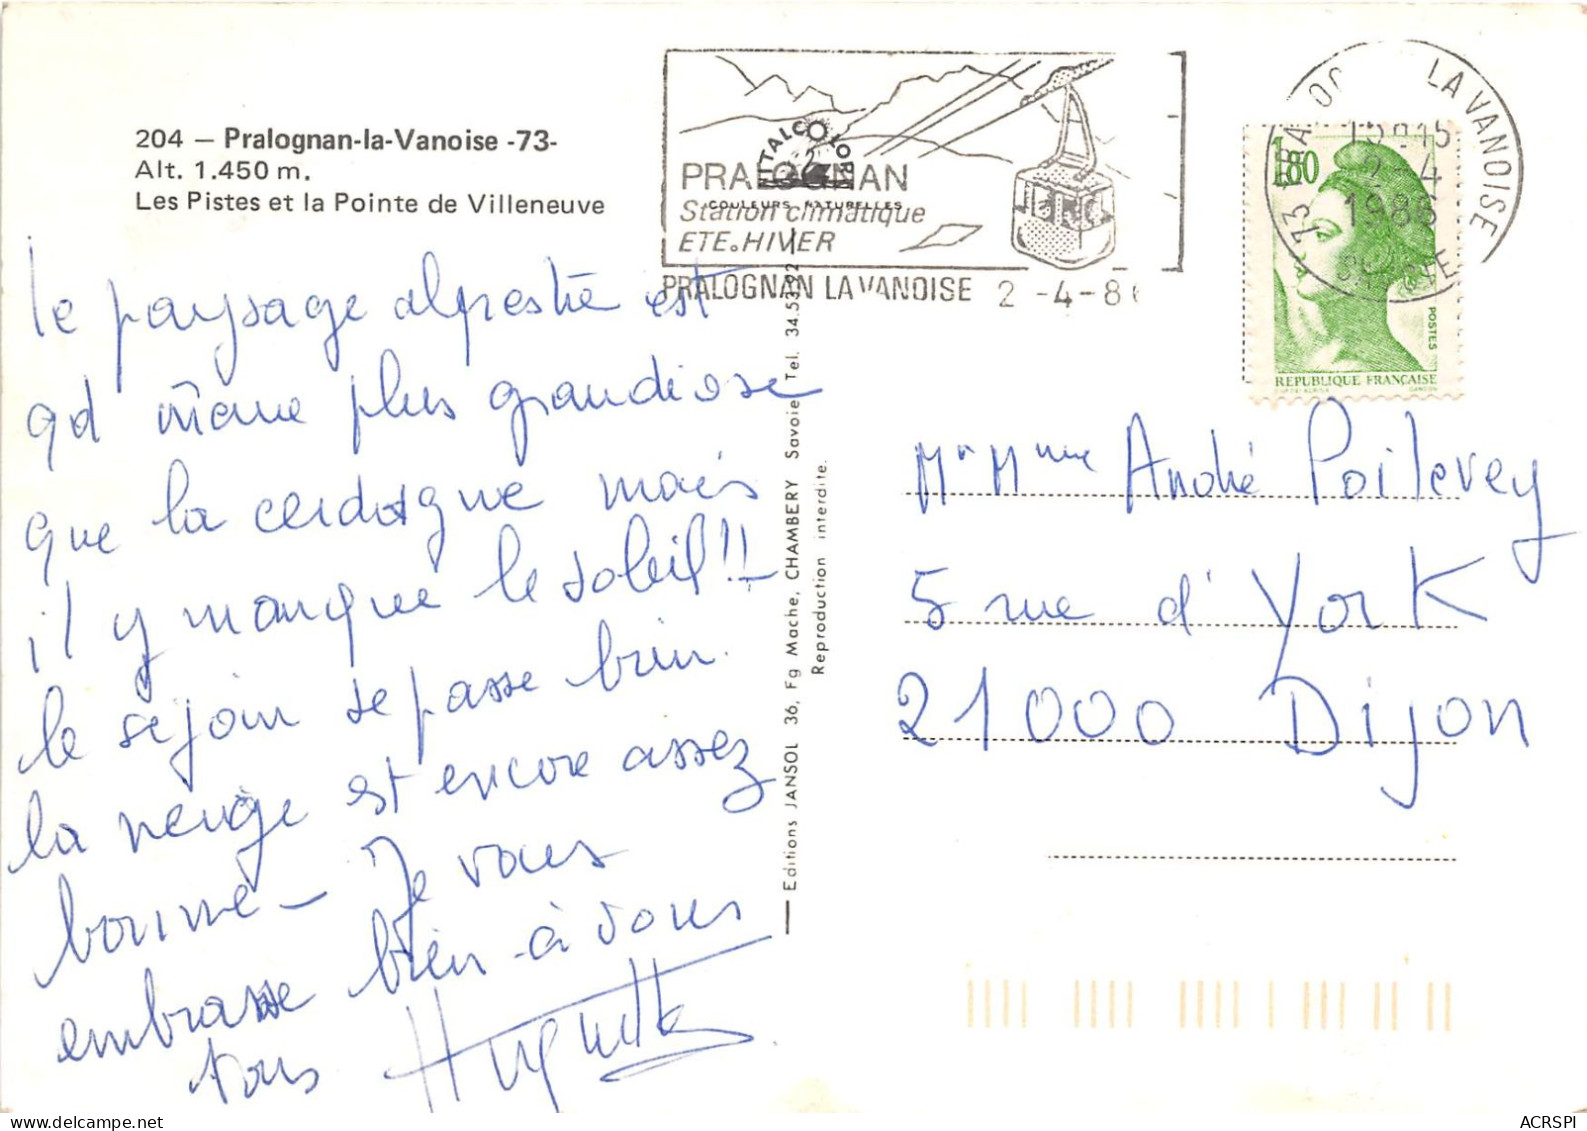 204 — Pralognan-la-Vanoise -73-
Alt. 1.450 m.
Les Pistes et la Pointe de Villeneuve
le paysage alpestre est
qd même plus grandiose
que la cerdagne mais
il y manque le soleil !!
le séjour se passe bien.
la neige est encore assez
bonne — Je vous
embrasse bien à vous
tous Huguette
VITALCOLOR
COULEURS NATURELLES
PRALOGNAN
Station climatique
ETE. HIVER
PRALOGNAN LA VANOISE 2 -4-8
LA VANOISE
73
2-4
1986
1,80
POSTES
REPUBLIQUE FRANÇAISE
Editions JANSOL 36, Fg Mache, CHAMBERY Savoie Tel. 34.53.92
Reproduction interdite.
Mr Mme André Poilevey
5 rue d'York
21000 Dijon
ACRSPI